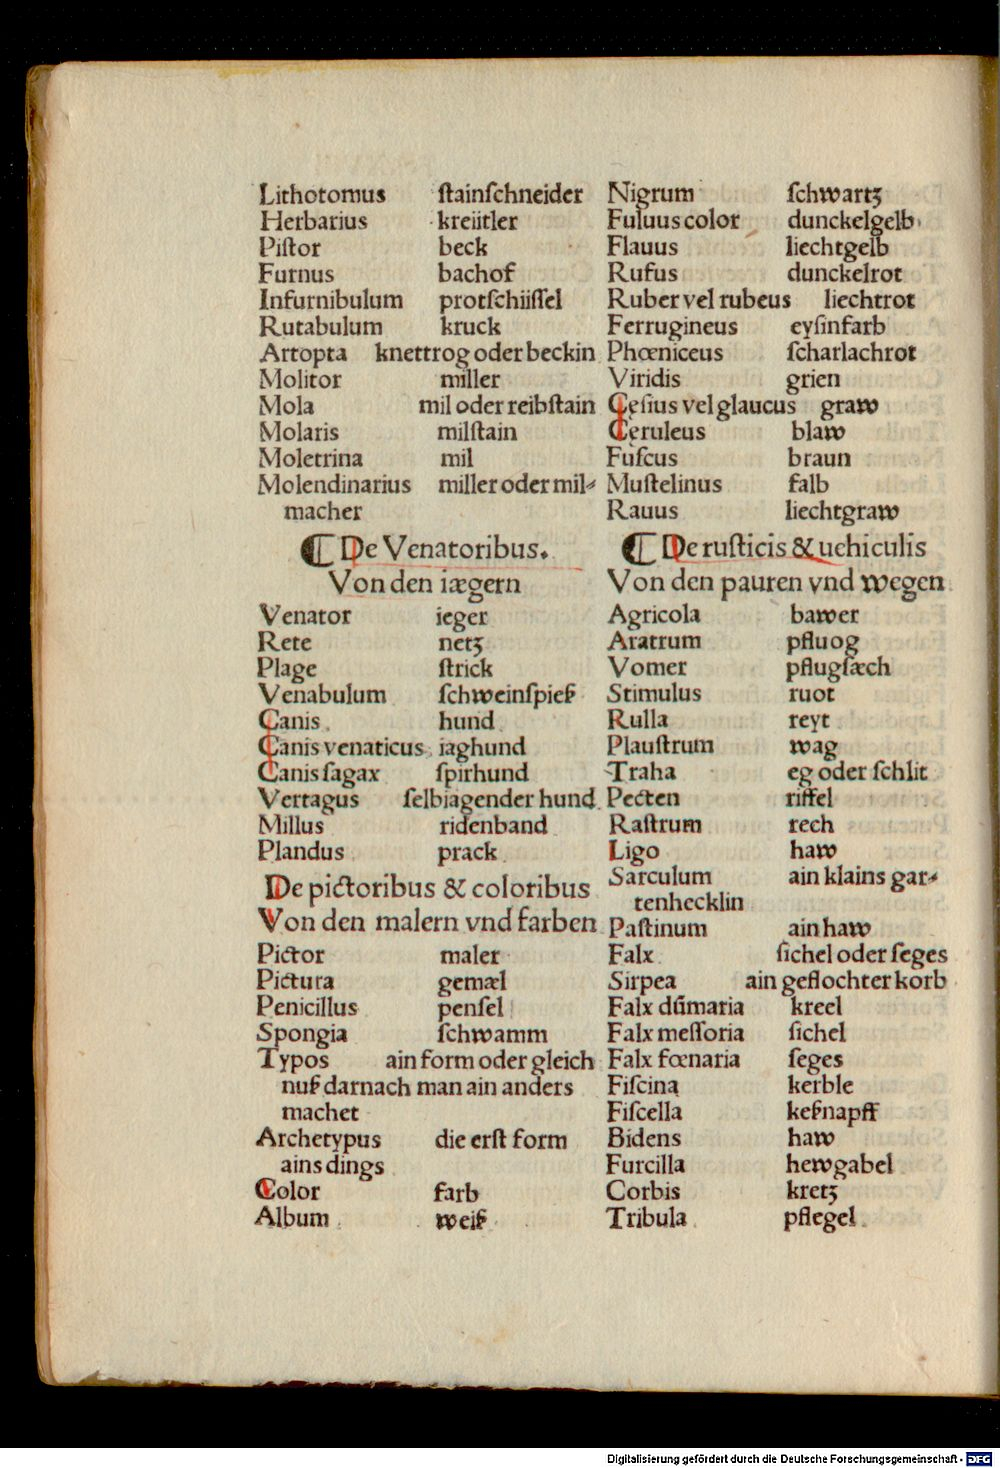 Lithotomus ſtainſchneider
Herbarius kreiitler
Piſtor beck
Furnus bachof
Infurnibulum protſchiiſſel
Rutabulum kruck
Artopta knettrog oder beckin
Molitor miller
Mola mil oder reibſtain
Molaris milſtain
Moletrina mil
Molendinarius miller oder mil⸗
macher
¶ De Venatoribus.
Von den iægern
Venator ieger
Rete netʒ
Plage ſtrick
Venabulum ſchweinſpieß
Canis hund
Canis venaticus iaghund
Canis ſagax ſpirhund
Vertagus ſelbiagender hund
Millus ridenband
Plandus prack
De pictoribus & coloribus
Von den malern vnd farben
Pictor maler
Pictura gemæl
Penicillus penſel
Spongia ſchwamm
Typos ain form oder gleich
nuß darnach man ain anders
machet
Archetypus die erſt form
ains dings
Color farb
Album weiß
Nigrum ſchwartʒ
Fuluus color dunckelgelb
Flauus liechtgelb
Rufus dunckelrot
Ruber vel rubeus liechtrot
Ferrugineus eyſinfarb
Phœniceus ſcharlachrot
Viridis grien
Cęſius vel glaucus graw
Cęruleus blaw
Fuſcus braun
Muſtelinus falb
Rauus liechtgraw
¶ De ruſticis & uehiculis
Von den pauren vnd wegen
Agricola bawer
Aratrum pfluog
Vomer pflugſæch
Stimulus ruot
Rulla reyt
Plauſtrum wag
Traha eg oder ſchlit
Pecten riffel
Raſtrum rech
Ligo haw
Sarculum ain klains gar⸗
tenhecklin
Paſtinum ain haw
Falx ſichel oder ſeges
Sirpea ain geflochter korb
Falx dūmaria kreel
Falx meſſoria ſichel
Falx fœnaria ſeges
Fiſcina kerble
Fiſcella keßnapff
Bidens haw
Furcilla hewgabel
Corbis kretʒ
Tribula pflegel
Digitalisierung gefördert durch die Deutsche Forschungsgemeinschaft - DFG